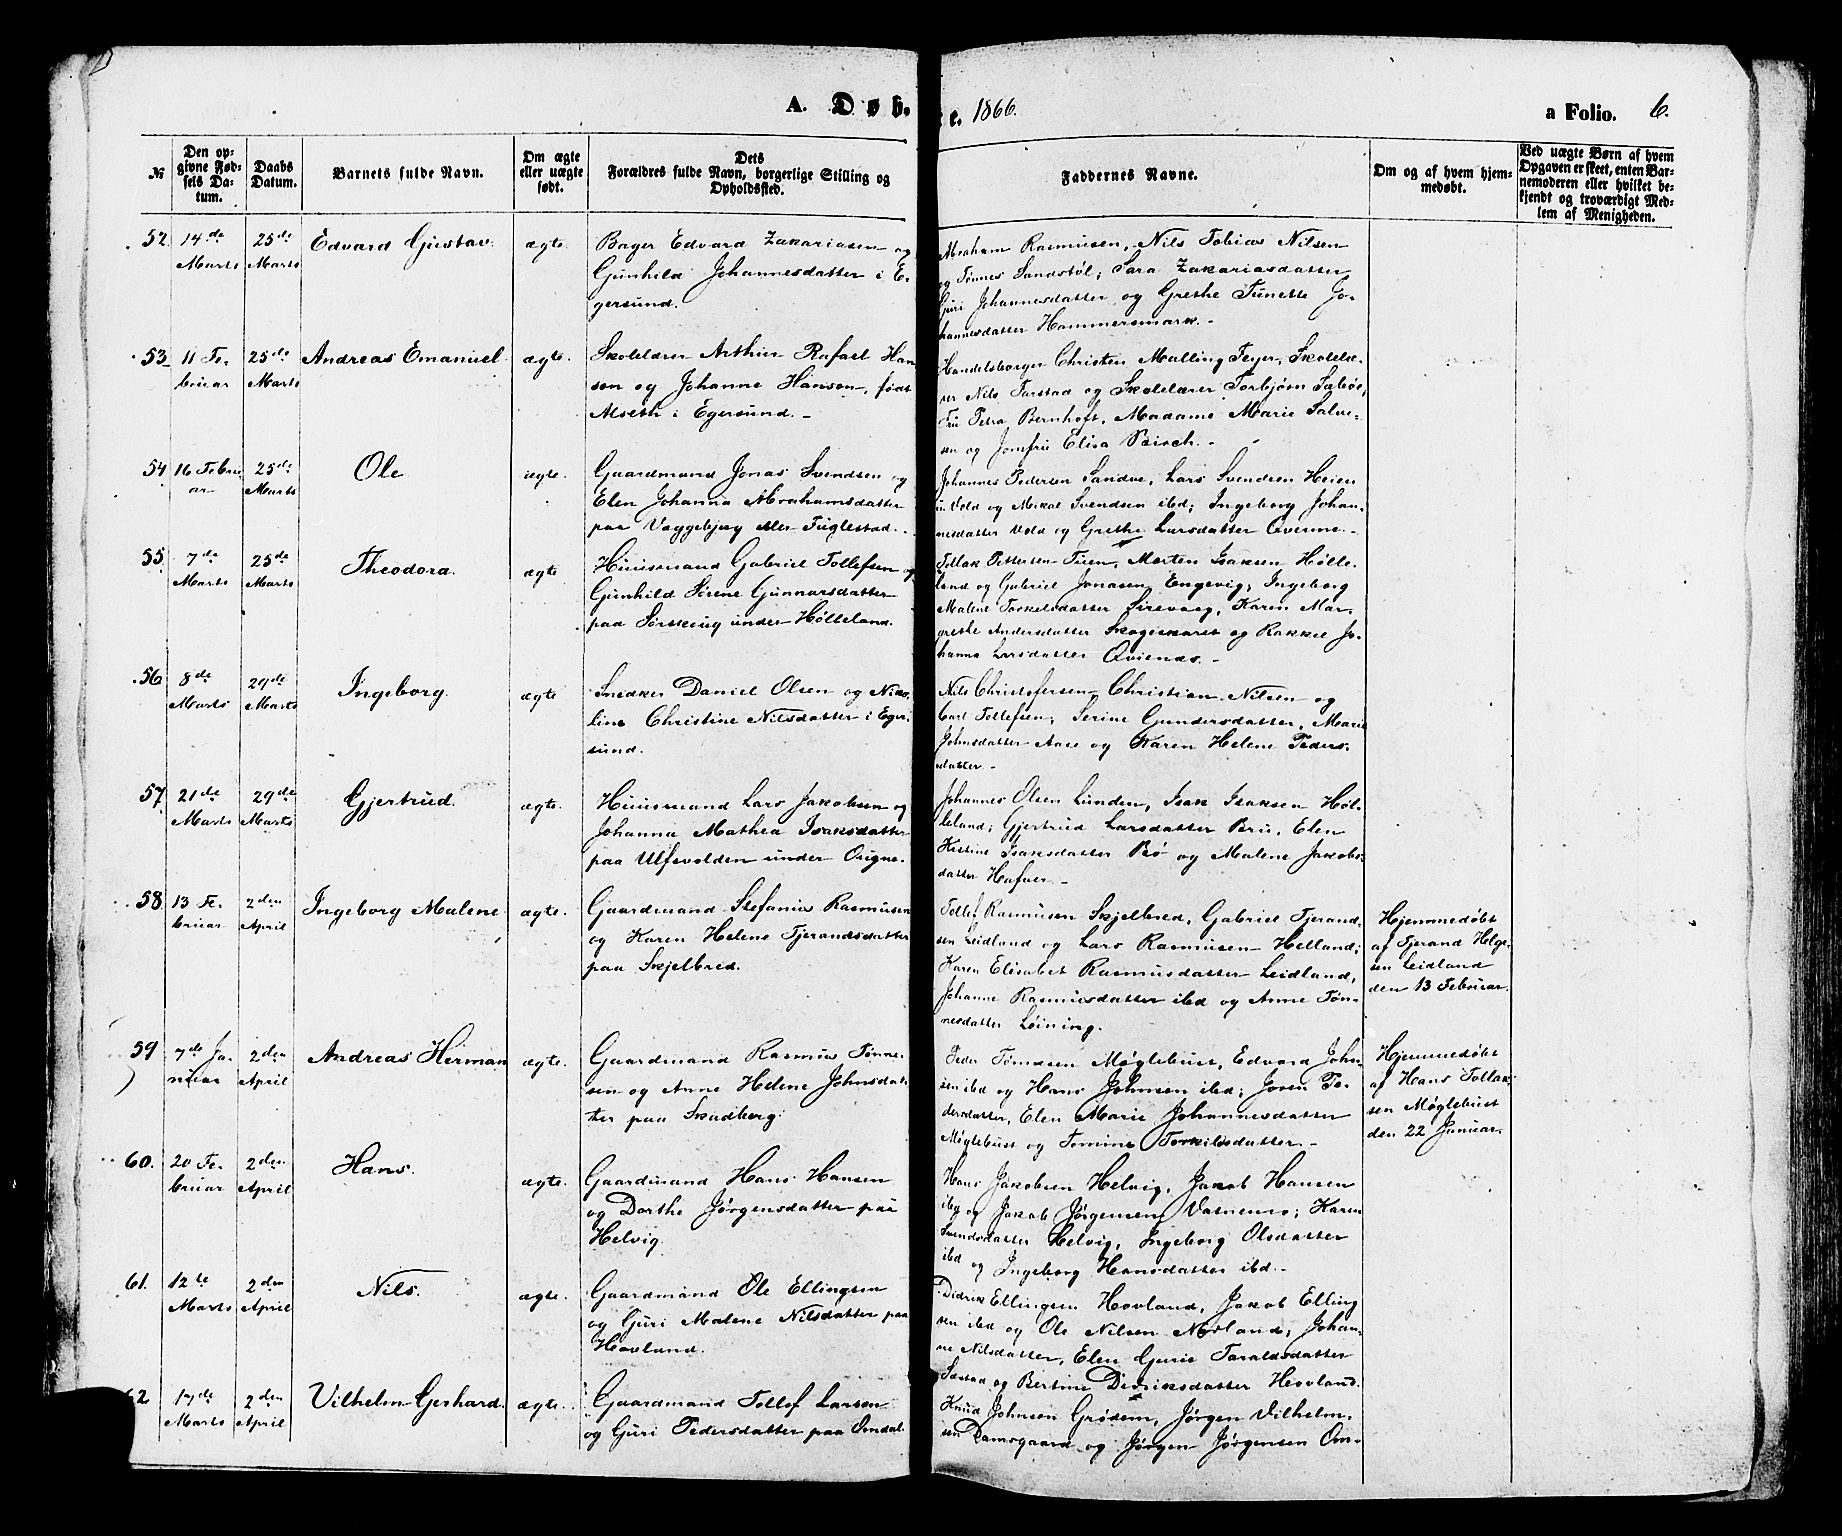 A. Døb. e. 1866.
a Folio. 6.
№
Den op-
givne Fød-
sels Da-
tum.
Daabs
Datum.
Barnets fulde Navn.
Om ægte
eller uægte
født.
Dets
Forældres fulde Navn, borgerlige Stilling og
Opholdssted.
Faddernes Navne.
Om og af hvem hjem-
medøbt.
Ved uægte Børn af hvem
Opgaven er skeet, enten Bar-
nemoderen eller hvilket be-
kjendt og troværdigt Med-
lem af Menigheden.
52.
14de
Marts
25de
Marts
Edvard Gustav.
ægte.
Bager Edvard Zakariasen og
Gunhild Johannesdatter i E-
gersund.
Abraham Rasmusen, Nils Tobias Nilsen
og Tønnes Sandstøl; Sara Zakariasdatter
Guri Johannesdatter og Grethe Tunette Jo-
hannesdatter Hammersmark.-
53.
11 Fe-
bruar
25de
Marts
Andreas Emanuel.
ægte.
Skolelærer Arthur Rafael Han
sen og Johanne Hanson, født
Alseth i Egersund.-
Handelsborger Christen Malling Feyer, Skolelæ-
rer Nils Tarstad og Skolelærer Torbjørn Sæbøe,
Fru Petra Bernhoft, Madame Marie Salve-
sen og Jomfru Elisa .-
54
16 Febru
ar
25de
Marts
Ole
ægte.
Gaardmand Jonas Svendsen og
Elen Johanna Abrahamsdatter
paa Vaggebjerg eller Fuglestad.
Johannes Pedersen Sandve, Lars Svendsen Heien
Vold og Mikal Svendsen ibd; Ingeborg Johan-
nesdatter Vold og Grethe Larsdatter Qvenne.-
55.
7de
Marts
25de
Marts
Theodora.
ægte.
Huusmand Gabriel Tollefsen og
Gunhild Serene Gunnarsdatter
paa Sørskoug under Hølleland.
Tollak Pettersen Tuen, Morten Isaksen Hølle-
land og Gabriel Jonasen Engevig; Ingeborg
Malene Torkelsdatter Sirevaag, Karen Mar-
grethe Andersdatter Skogeskaret og Rakkel Jo-
hanna Larsdatter .-
56
8de
Marts
29de
Marts
Ingeborg.
ægte
Snedker Daniel Olsen og Niko-
line Christine Nilsdatter i Eger-
sund.
Nils Christofersen Christian Nilsen og
Carl Tollefsen; Serine Gundersdatter, Marie
Johnsdatter Aase og Karen Helene Peders-
datter.-
57
21de
Marts
29de
Marts
Gjertrud.
ægte.
Huusmand Lars Jakobsen og
Johanna Mathea Isaksdatter
paa Ulfsvolden under Ougne.
Johannes Olsen Lunden, Isak Isaksen Høl-
leland; Gjertrud Larsdatter Bru, Elen
Kistine Isaksdatter Bø og Malene Jakobs-
datter .-
58
13 Fe-
bruar
2den
April
Ingeborg Malene
ægte.
Gaardmand Stefanus Rasmusen
og Karen Helene Tjerandsdatter
paa Skjelbred.
Tollef Rasmusen Skjelbred, Gabriel Tjerand-
sen Leidland og Lars Rasmusen Helland;
Karen Elisabet Rasmusdatter Leidland,
Johanne Rasmusdatter ibd og Anne Tøn-
nesdatter Løining.
Hjemmedøbt
af Tjerand Helge-
sen Leidland
den 13 Februar.
59
7de Ja-
nuar
2den
April
Andreas Herman
ægte.
Gaardmand Rasmus Tønne-
sen og Anne Helene Johnsdat-
ter paa Skadberg.
Peder Tønnesen Møglebust, Edvard John-
sen ibd og Hans Johnsen ibd; Joren Pe-
dersdatter, Elen Marie Johannesdatter
Møglebust og Tomine Torkilsdatter.-
Hjemmedøbt
af Hans Tollak-
sen Møglebust
den 22 Januar.
60.
20 Fe-
bruar
2den
April
Hans.
ægte.
Gaardmand Hans Hansen
og Dorthe Jørgensdatter paa
Helvig.
Hans Jakobsen Helvig, Jakob Hansen
ibd og Jakob Jørgensen Vatnemo; Karen
Svendsdatter Helvig, Ingeborg Olsdatter
ibd og Ingeborg Hansdatter ibd.-
61.
12te
Marts
2den
April
Nils.
ægte.
Gaardmand Ole Ellingsen
og Guri Malene Nilsdatter paa
Hovland.
Didrik Ellingsen Hovland, Jakob Elling
sen ibd og Ole Nilsen Hovland; Johan-
ne Nilsdatter, Elen Gurie Taraldsdatter
Sæstad og Bertine Didriksdatter Hovland.
62
17de
Marts
2den
April
Vilhelm Gerhard.
ægte.
Gaardmand Tollef Larsen
og Guri Pedersdatter paa Omdal.
Knud Johnsen Grødem, Jørgen Vilhelm-
sen Damsgaard og Jørgen Jørgensen Om-